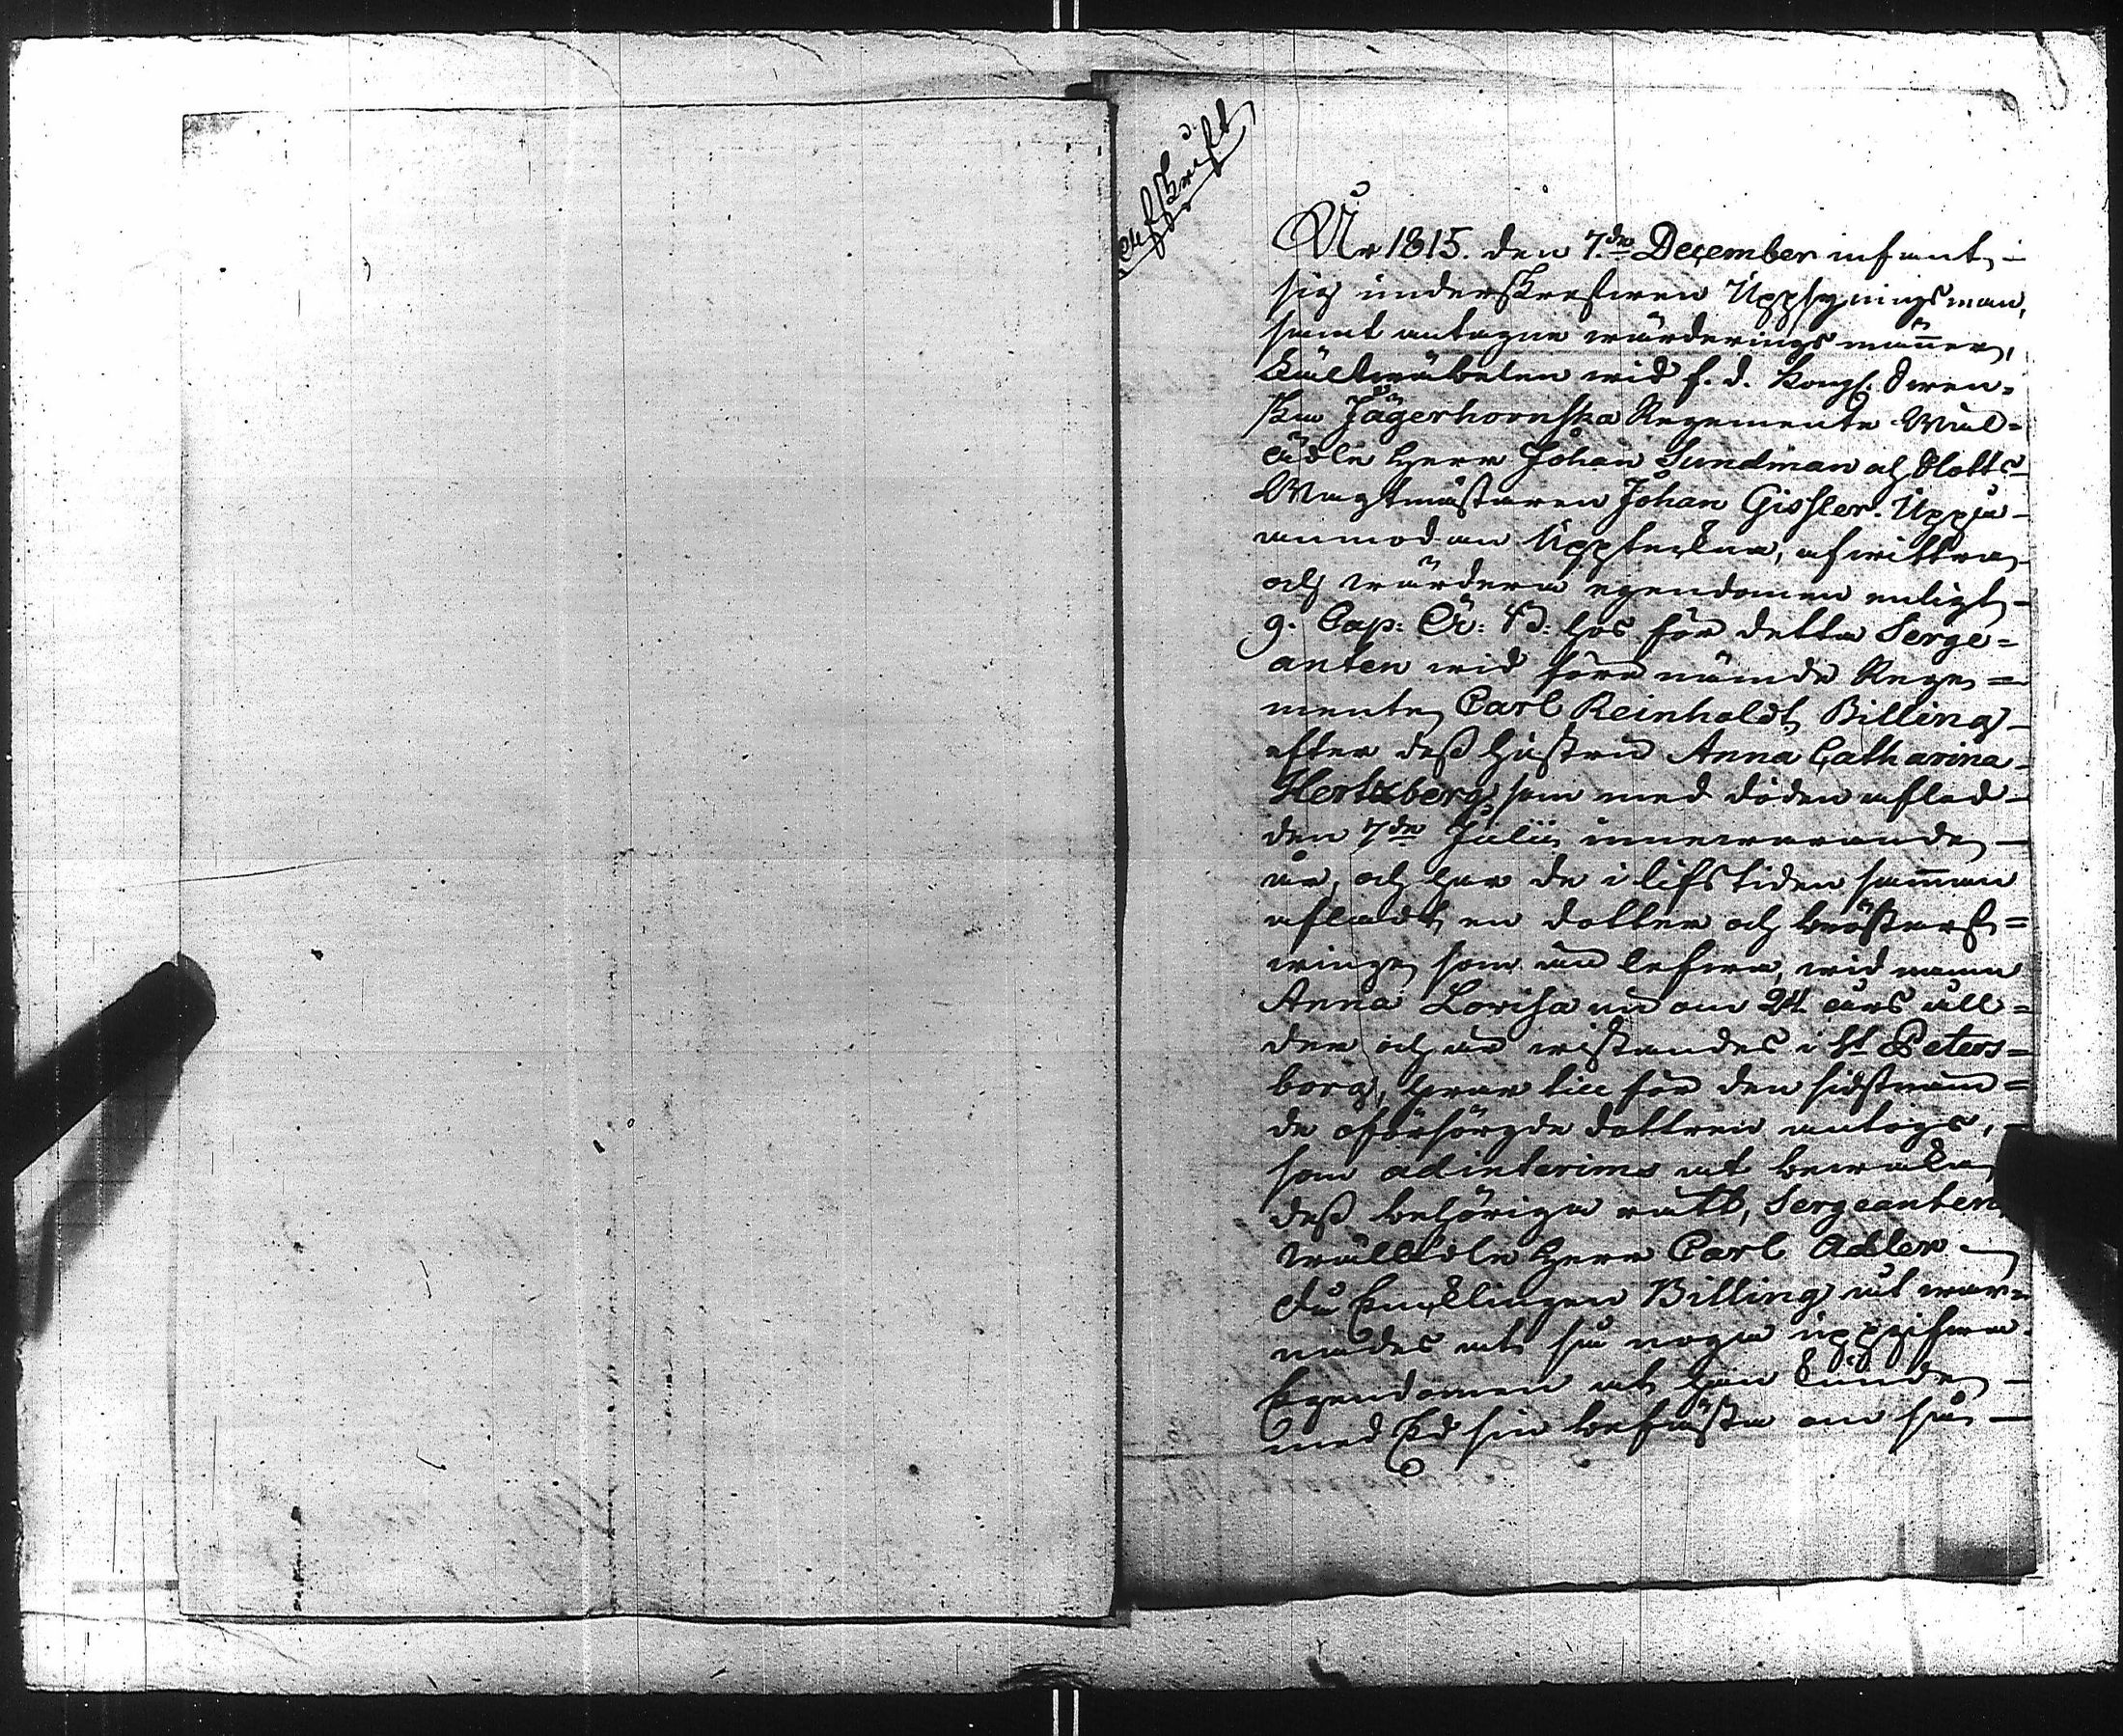 Afskrift
År 1815. den 7.de December infant
sig underskrefwen Uppsyningsman,
samt antagne wärderings männer,
Fältwäbelen wid f. d. Kongl. Swen-
ska Jägerhornska Regemente Wäl-
ädle Herr Johan Sundman och Slotts-
Wagtmästaren Johan Gissler. Uppå
anmodan Uppteckna, afwittra
och wärdera egendomen enligt
9. Cap: Är: B: hos för detta Serge-
anten wid förenämde Rege-
mente Carl Reinholdt Billing
efter dess Hustru Anna Catharina
Hertzberg, som med döden afled
den 7de Julii innewarande
år, och har de i lifstiden samman
afladt en dotter och bröstarf-
winge som än lefwer, wid namn
Anna Lovisa nu om 24 års åll-
der och är wistandes i St Peters-
borg, hwar till för den sidstnäm-
de oförsörgde dottren antogs,
som adinterims at bewaka
dess behöriga rätt, Sergeanten
wälädle Herr Carl Adler
Då Encklingen Billing åt war-
nades at så noga uppgifwa
Egendomen at han kunde
med Ed sin befästa om så